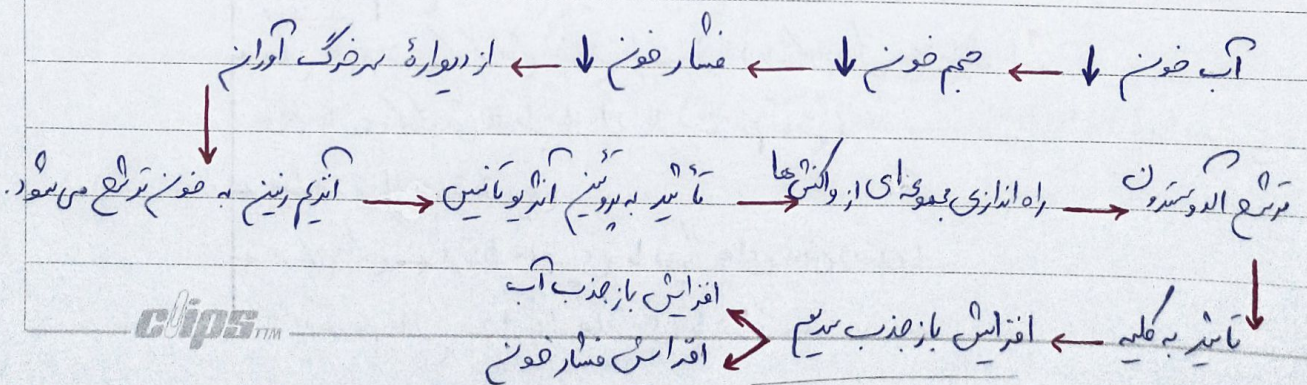 آب خون ↓ ← حجم خون ↓ ← فشار خون ↓ ← از دیوارهٔ سرخرگ آوران
↓
آنزیم رنین به خون ترشح می‌شود. → تأثیر به پروتئین آنژیوتانسین → راه اندازی مجموعه‌ای از واکنش‌ها → ترشح آلدوسترون
↓
تاثیر به کلیه ← افزایش بازجذب سدیم
افزایش بازجذب آب
افزایش فشار خون
clips TM